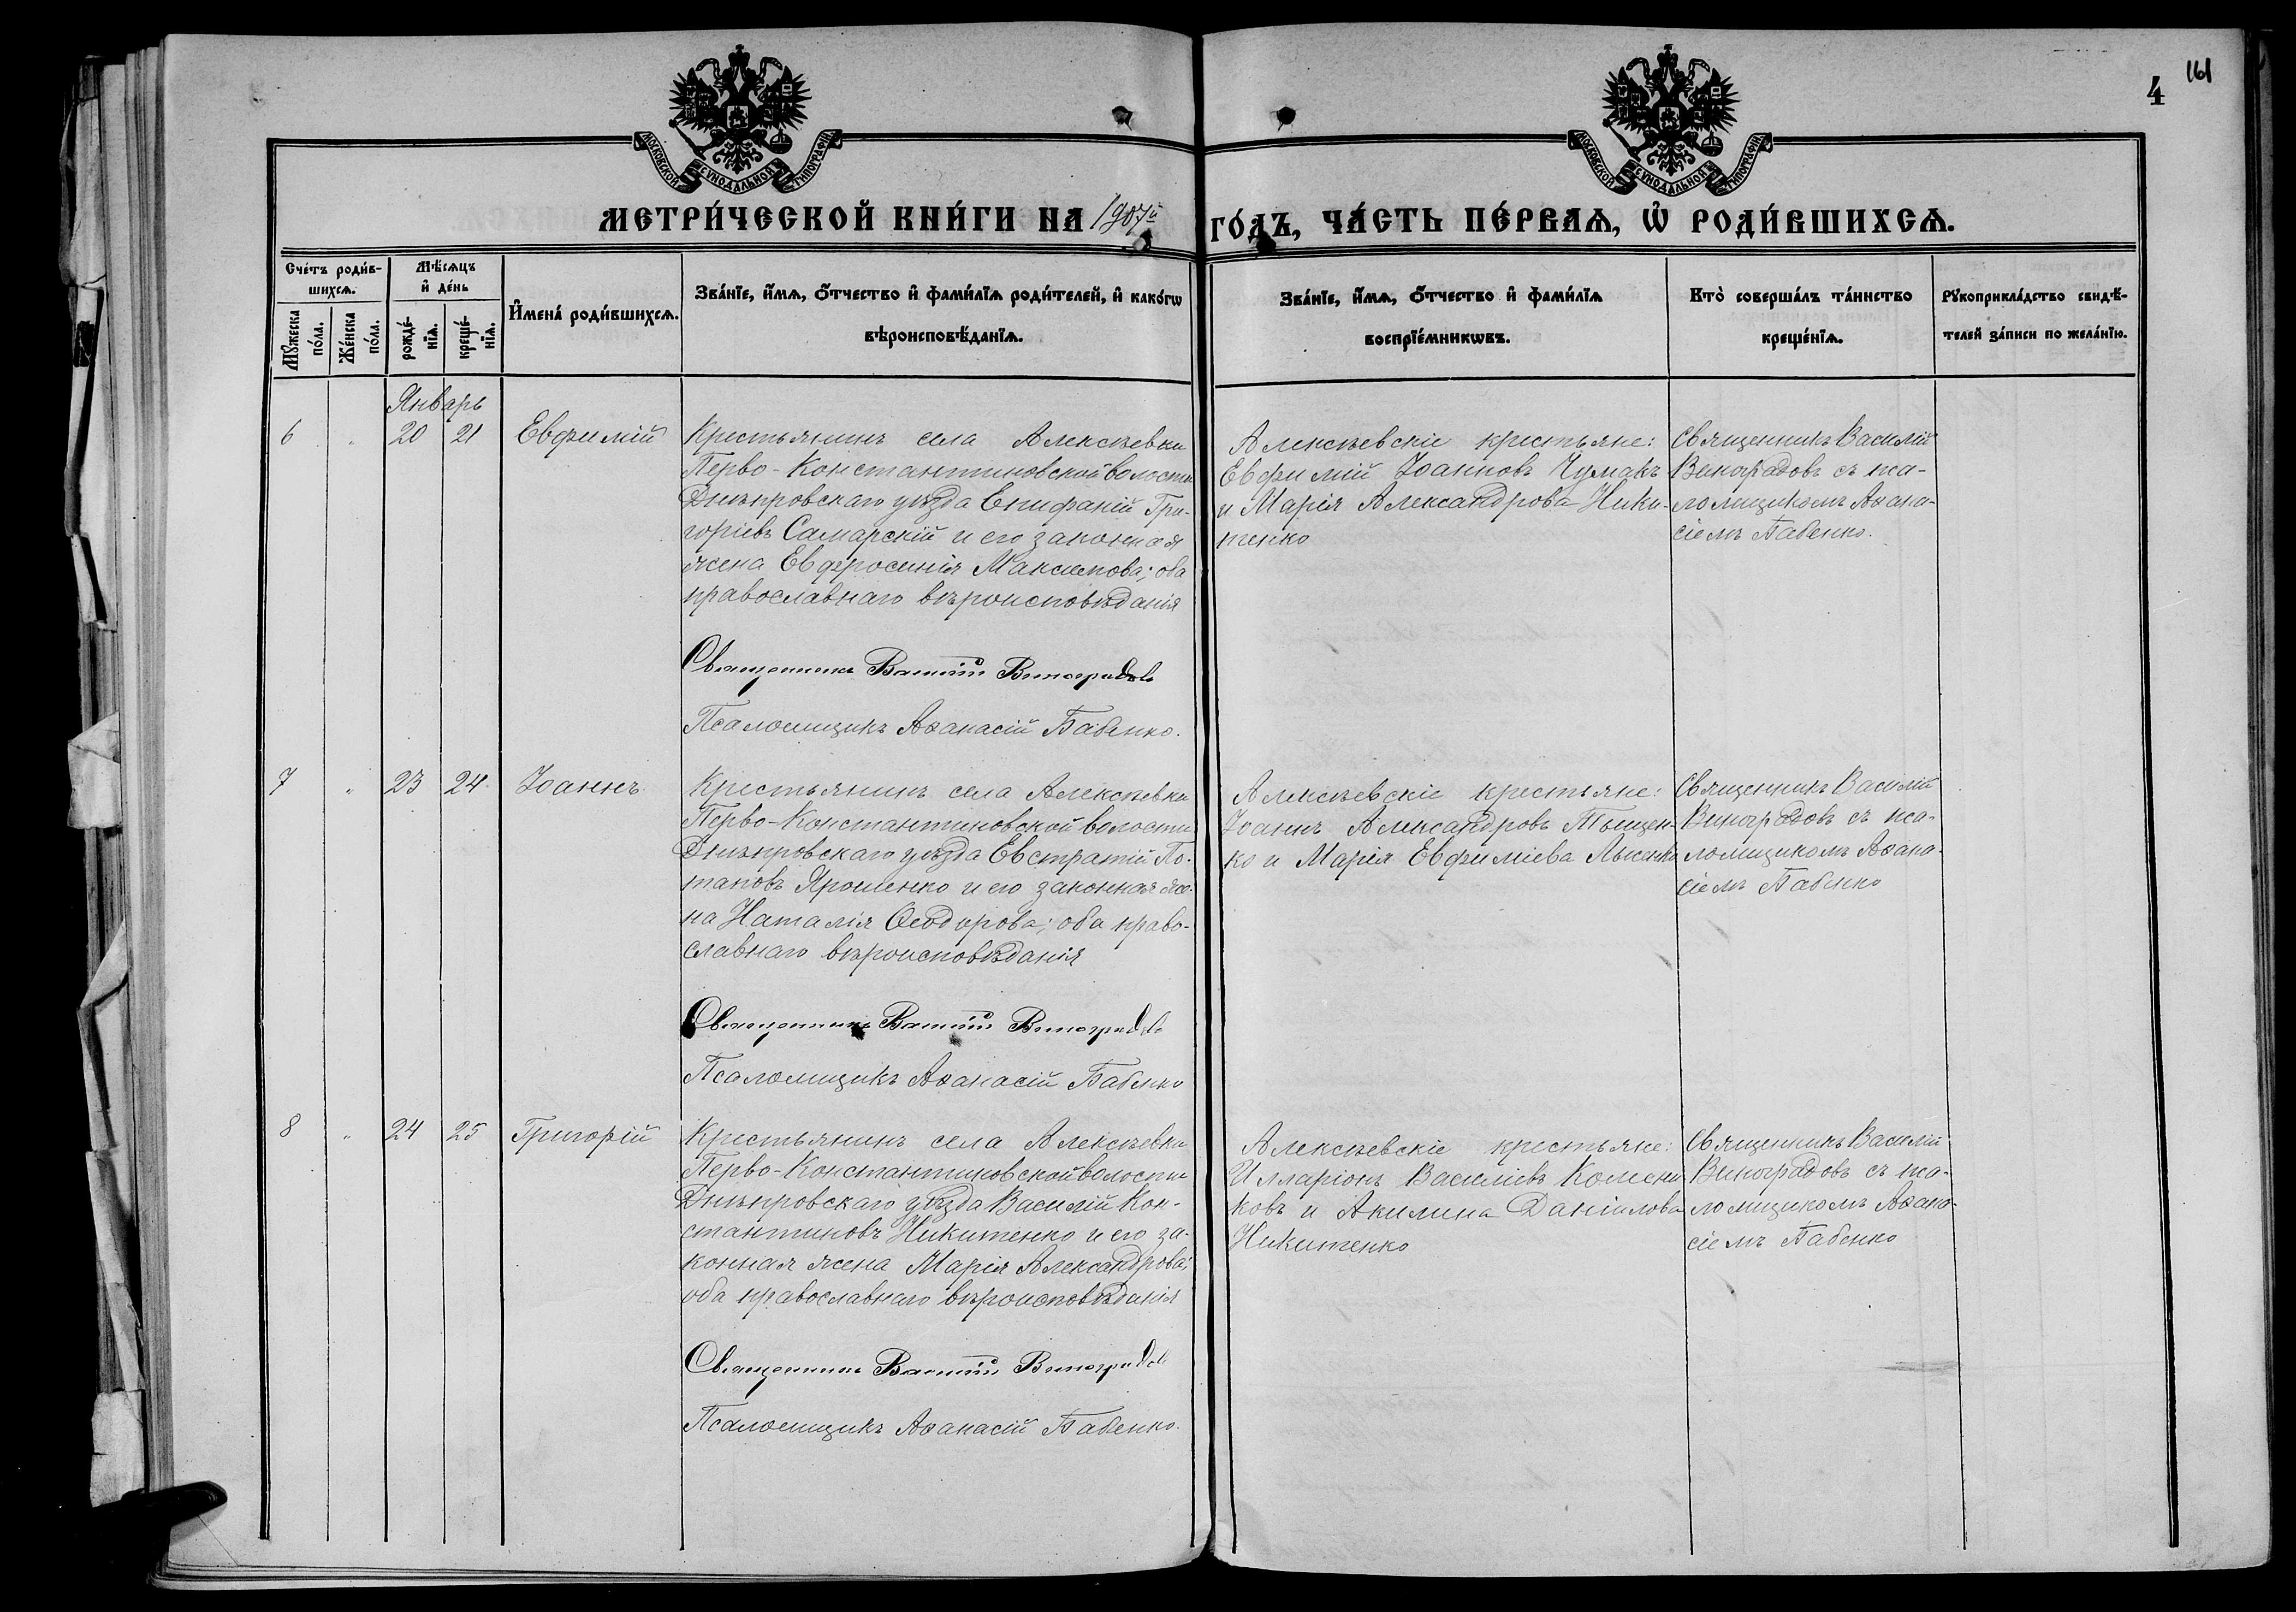 161
4
МОСКОВСКОЙ СѴНОДАЛЬНОЙ ТИПОГРАФІИ
МОСКОВСКОЙ СѴНОДАЛЬНОЙ ТИПОГРАФІИ
МЕТРИ́ЧЕСКОЙ КНИ́ГИ НА 1907й
ГО́ДЪ, ЧА́СТЬ ПЕ́РВАѦ, Ѡ҆ РОДИ́ВШИХСѦ.
Сче́тъ роди́в-
шихсѧ.
Мѣ́сѧцъ
и҆ де́нь
Мꙋ́жеска
по́ла.
Же́нска
по́ла.
рожде́-
нїѧ.
креще́-
нїѧ.
И҆мена̀ роди́вшихсѧ.
Зва́нїе, и҆́мѧ, ѻ҆́тчество и҆ фами́лїѧ роди́телей, и҆ како́гѡ
вѣроисповѣ́данїѧ.
Зва́нїе, и҆́мѧ, ѻ҆́тчество и҆ фами́лїѧ
воспрїе́мникѡвъ.
Кто̀ соверша́лъ та́инство
креще́нїѧ.
Рꙋкоприкла́дство свидѣ́-
телей за́писи по жела́нїю.
Январь
6 " 20 21 Евфимій
Крестьянинъ села Алексѣевки
Перво-Константиновской волости
Днѣпровскаго уѣзда Епифаній Гри-
горіевъ Самарскій и его законная
жена Евфросинія Максимова; оба
православнаго вѣроисповѣданія
Священникъ Василій Виноградовъ
Псаломщикъ Аѳанасій Бабенко.
Алексѣевскіе крестьяне:
Евфимій Іоанновъ Чумакъ
и Марія Александрова Ники-
тенко
Священникъ Василій
Виноградовъ съ пса-
ломщикомъ Аѳана-
сіемъ Бабенко.
7 " 23 24 Іоаннъ
Крестьянинъ села Алексѣевки
Перво-Константиновской волости
Днѣпровскаго уѣзда Евстратій По-
таповъ Ярошенко и его законная же-
на Наталія Ѳеодорова; оба право-
славнаго вѣроисповѣданія
Священникъ Василій Виноградовъ
Псаломщикъ Аѳанасій Бабенко
Алексѣевскіе крестьяне:
Іоаннъ Александровъ Тыщен-
ко и Марія Евфиміева Лысенко
Священникъ Василій
Виноградовъ съ пса-
ломщикомъ Аѳана-
сіемъ Бабенко
8 " 24 25 Григорій
Крестьянинъ села Алексѣевки
Перво-Константиновской волости
Днѣпровскаго уѣзда Василій Кон-
стантиновъ Никитенко и его за-
конная жена Марія Александрова;
оба православнаго вѣроисповѣданія
Священникъ Василій Виноградовъ
Псаломщикъ Аѳанасій Бабенко.
Алексѣевскіе крестьяне:
Илларіонъ Василіевъ Комени-
ковъ и Акилина Даніилова
Никитенко
Священникъ Василій
Виноградовъ съ пса-
ломщикомъ Аѳана-
сіемъ Бабенко